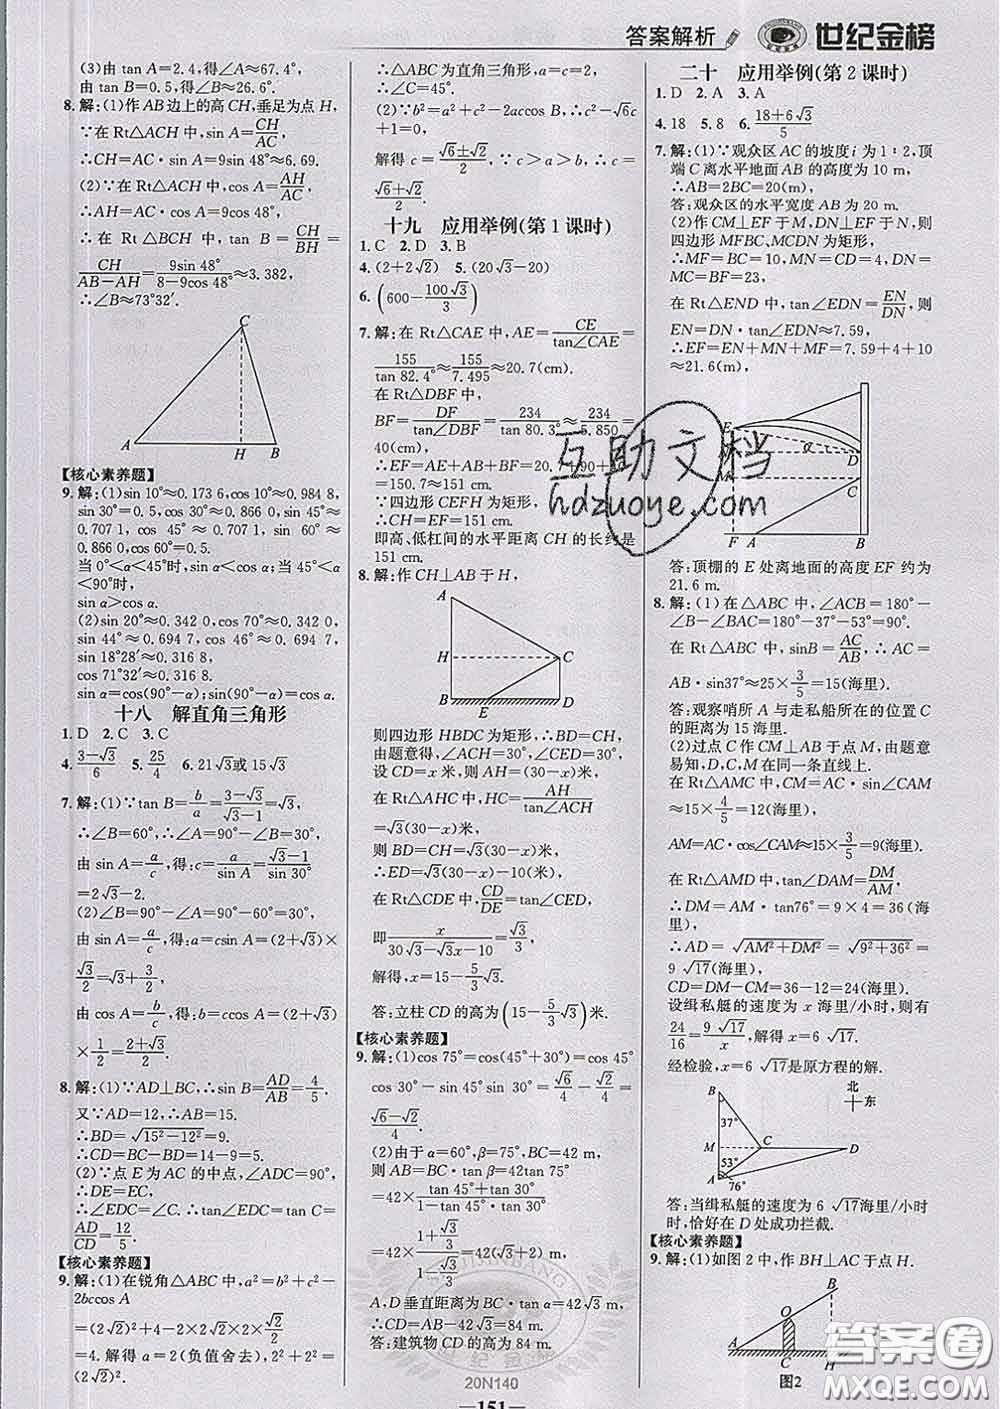 答案解析 世纪金榜
(3)由 tan A=2.4,得∠A≈67.4°;
由 tan B=0.5,得∠B≈26.6°.
8. 解:(1)作 AB 边上的高 CH,垂足为点 H,
∵在 Rt△ACH 中,sin A=CH/AC,
∴CH=AC·sin A=9sin 48°≈6.69.
(2)∵在 Rt△ACH 中,cos A=AH/AC,
∴AH=AC·cos A=9cos 48°,
∴在 Rt△BCH 中,tan B=CH/BH=
CH/(AB-AH)=9sin 48°/(8-9cos 48°)≈3.382,
∴∠B≈73°32′.
C
A H B
【核心素养题】
9. 解:(1)sin 10°≈0.173 6,cos 10°≈0.984 8,
sin 30°=0.5,cos 30°≈0.866 0,sin 45°≈
0.707 1,cos 45°≈0.707 1,sin 60°≈
0.866 0,cos 60°=0.5;
当 0°<α<45°时,sin α<cos α;当 45°<α<90°时,
sin α>cos α.
(2)sin 20°≈0.342 0,cos 70°≈0.342 0,
sin 44°≈0.694 7,cos 46°≈0.694 7,
sin 18°28′≈0.316 8,
cos 71°32′≈0.316 8.
sin α=cos(90°-α);sin(90°-α)=cos α.
十八 解直角三角形
1. D 2. C 3. C
4. (3-√3)/6 5. 25/4 6. 21√3或 15√3
7. 解:(1)∵tan B=b/a=(3-√3)/(√3-1)=√3,
∴∠B=60°,∴∠A=90°-∠B=30°;
由 sin A=a/c,得:c=a/sin A=(√3-1)/
=2√3-2.
(2)∠B=90°-∠A=90°-60°=30°,
由 sin A=a/c,得:a=csin A=(2+√3)×
√3/2=√3+3/2,
由 cos A=b/c,得:b=ccos A=(2+√3)
×1/2=(2+√3)/2.
8. 解:(1)∵AD⊥BC,∴sin B=AD/AB=4/5.
又∵AD=12,∴AB=15.
∴BD=√(15²-12²)=9.
∴CD=BC-BD=14-9=5.
(2)∵点 E 为 AC 的中点,∠ADC=90°,
∴DE=EC,
∴∠EDC=∠C. ∴tan∠EDC=tan C=
AD/CD=12/5.
【核心素养题】
9. 解:(1)在锐角△ABC 中,a²=b²+c²-
2bccos A
=(2√2)²+4-2×2√2×2×√2/2
=4. 解得 a=2(负值舍去),2²+2²=
(2√2)².
∴△ABC 为直角三角形,a=c=2,
∴∠C=45°.
(2)∵b²=a²+c²-2accos B,∴c²-√6c
+1=0,
解得 c=(√6±√2)/2. ∵c>a>b,∴c=
(√6+√2)/2.
十九 应用举例(第 1 课时)
1. C 2. D 3. B
4. (2+2√2) 5. (20√3-20)
6. (600-100√3/3)
7. 解:在 Rt△CAE 中,AE=CE/tan∠CAE=
155/tan 82.4°≈155/7.495≈20.7(cm).
在 Rt△DBF 中,
BF=DF/tan∠DBF=234/tan 80.3°≈234/5.850=
40(cm)
∴EF=AE+AB+BF=20.7+90+40
=150.7≈151 cm.
∵四边形 CEFH 为矩形,
∴CH=EF=151 cm.
即高、低杠间的水平距离 CH 的长约是
151 cm.
8. 解:作 CH⊥AB 于 H,
A
H C
B E D
则四边形 HBDC 为矩形,∴BD=CH,
由题意得,∠ACH=30°,∠CED=30°,
设 CD=x 米,则 AH=(30-x)米,
在 Rt△AHC 中,HC=AH/tan∠ACH
=√3(30-x)米,
则 BD=CH=√3(30-x)米,
∴ED=√3(30-x)-10(米),
在 Rt△CDE 中,CD/DE=tan∠CED,
即 x/(30√3-√3x-10)=√3/3,
解得,x=15-5/3√3,
答:立柱 CD 的高为(15-5/3√3)米.
【核心素养题】
9. 解:(1)cos 75°=cos(45°+30°)=cos 45°
cos 30°-sin 45°sin 30°=√6/4-√2/4=
(√6-√2)/4.
(2)由于 α=60°,β=75°,BC=42 m,
则 AB=BC·tan β=42tan 75°
=42×(tan 45°+tan 30°)/(1-tan 45°tan 30°)
=42×(1+√3/3)/(1-√3/3)
A、D 垂直距离为 BC·tan α=42√3 m,
∴CD=AB-42√3=84 m.
答:建筑物 CD 的高为 84 m.
二十 应用举例(第 2 课时)
1. D 2. A 3. A
4. 18 5. 8 6. (18+6√3)/5
7. 解:(1)∵观众区 AC 的坡度 i 为 1∶2,顶
端 C 离水平地面 AB 的高度为 10 m,
∴AB=2BC=20(m),
答:观众区的水平宽度 AB 为 20 m.
(2)作 CM⊥EF 于 M,DN⊥EF 于 N,则
四边形 MFBC、MCDN 为矩形,
∴MF=BC=10,MN=CD=4,DN=
MC=BF=23,
在 Rt△END 中,tan∠EDN=EN/DN,则
EN=DN·tan∠EDN≈7.59,
∴EF=EN+MN+MF=7.59+4+10
≈21.6(m),
E α D
C
F A B
答:顶棚的 E 处离地面的高度 EF 约为
21.6 m.
8. 解:(1)在△ABC 中,∠ACB=180°-
∠B-∠BAC=180°-37°-53°=90°.
在 Rt△ABC 中,sinB=AC/AB,∴AC=
AB·sin37°≈25×3/5=15(海里).
答:观察哨所 A 与走私船所在的位置 C
的距离为 15 海里.
(2)过点 C 作 CM⊥AB 于点 M,由题意
易知,D、C、M 在同一条直线上.
在 Rt△AMC 中,CM=AC·sin∠CAM
≈15×4/5=12(海里),
AM=AC·cos∠CAM≈15×3/5=9(海里).
在 Rt△AMD 中,tan∠DAM=DM/AM,
∴DM=AM·tan76°≈9×4=36(海里),
∴AD=√(AM²+DM²)=√(9²+36²)=
9√17(海里),
CD=DM-CM=36-12=24(海里).
设缉私艇的速度为 x 海里/小时,则有
24/16=9√17/x,解得 x=6√17.
经检验,x=6√17是原方程的解.
北
东
B
37°
M C D
53°
A 76°
答:当缉私艇的速度为 6√17海里/小时
时,恰好在 D 处成功拦截.
【核心素养题】
9. 解:(1)如图 2 中,作 BH⊥AC 于点 H.
B
O
A C H
图2
20N140
—151—
互助文档
hdzuoye.com
答案圈
MXQE.COM